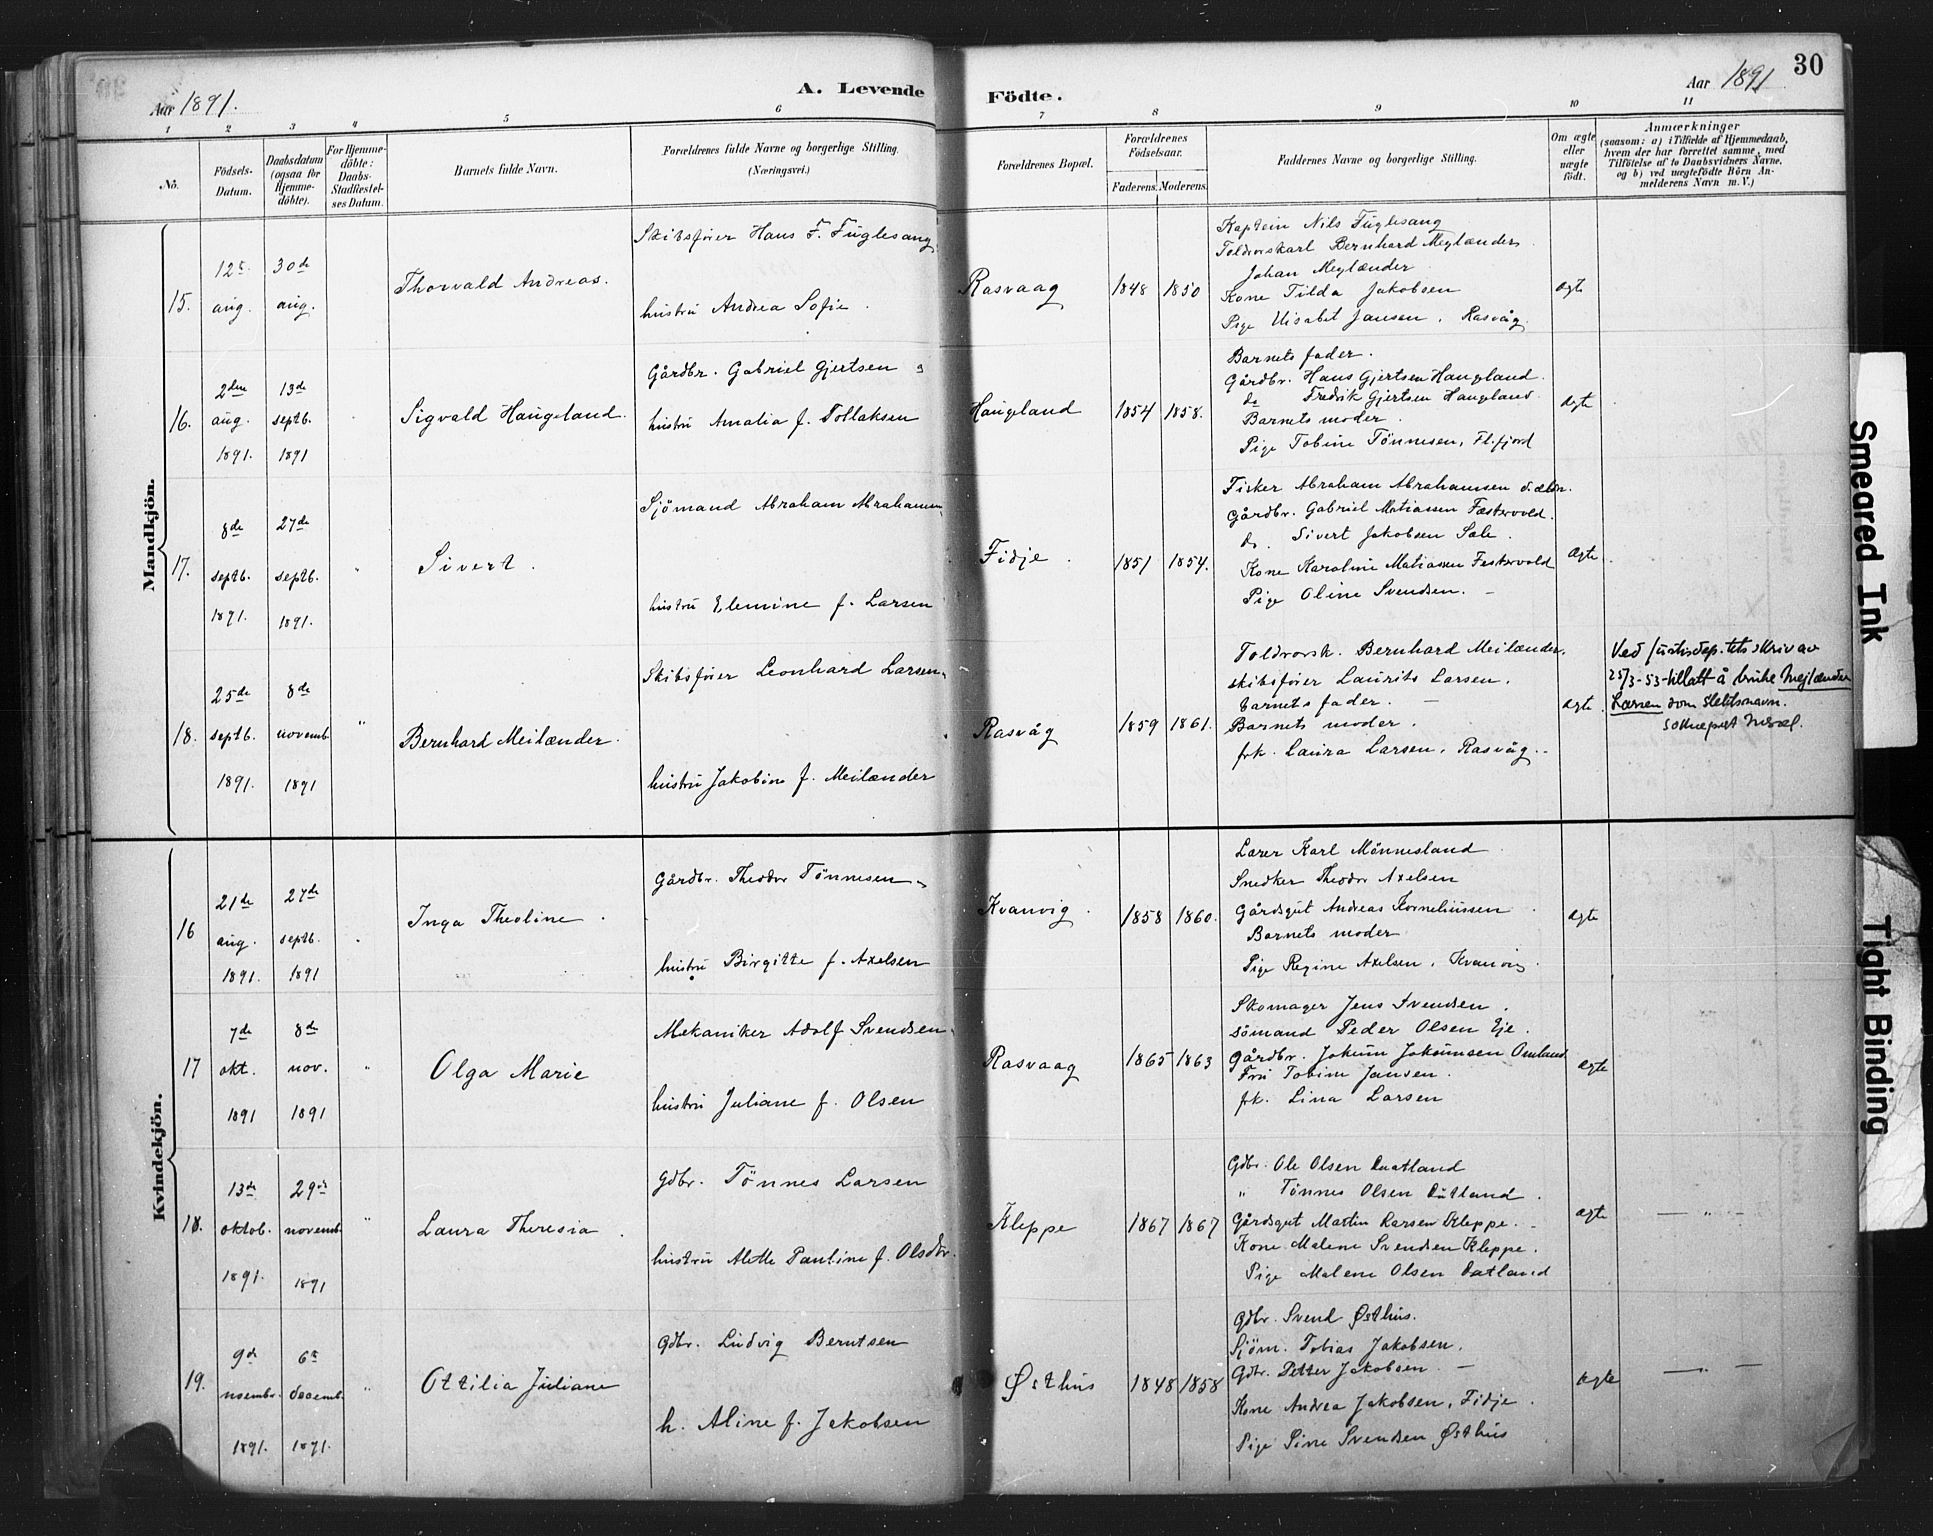 Aar 1891.
A. Levende Födte.
Aar 1891
30
1 2 3 4 5 6 7 8 9 10 11
Nò.
Födsels-Datum.
Daabsdatum (ogsaa for Hjemme-döbte).
For Hjemme-döbte: Daabs-Stadfæstel-ses Datum.
Barnets fulde Navn.
Forældrenes fulde Navne og borgerlige Stilling.
(Næringsvei.)
Forældrenes Bopæl.
Forældrenes Födselsaar.
Faderens. Moderens.
Faddernes Navne og borgerlige Stilling.
Om ægte eller uægte födt.
Anmærkninger
(saasom: a) i Tilfælde af Hjemmedaab,
hvem der har forrettet samme, med
Tilföielse af to Daabsvidners Navne.
og b) ved uægtefödte Börn An-
melderens Navn m. V.)
Mandkjön.
15.
12t aug.
30de aug.
Thorvald Andreas.
Skibsfører Hans F. Fuglesang
hustru Andrea Sofie
Rasvaag
1848 1850
Kaptein Nils Fuglesang
Toldrorskarl Bernhard Meylænder
Johan Meylænder
Kone Tilda Jakobsen
Pige Elisabet Jansen, Rasvåg
ægte
16.
2den aug. 1891.
13de septb. 1891
Sigvald Haugeland.
Gårdbr. Gabriel Gjertsen
hustru Amalia f. Tollaksen
Haugeland
1854 1858.
Barnets fader.
Gårdbr. Hans Gjertsen Haugland.
do Fredrik Gjertsen Haugland
Barnets moder.
Pige Tobine Tönnesen, Flifjord
ægte
17.
8de septb. 1891.
27de septb. 1891.
"
Sivert.
Sjömand Abraham Abrahamsen
hustru Elemine f. Larsen
Fidje.
1851 1854.
Fisker Abraham Abrahamsen d. ældr.
Gårdbr. Gabriel Matiassen Fæstervold.
do. Sivert Jakobsen Sale.
Kone Karoline Matiassen Festervold
Pige Oline Svendsen. –
Ægte
18.
25de septb. 1891.
8de novemb. 1891
"
Bernhard Meilænder.
Skibsfører Leonhard Larsen
hustru Jakobine f. Meilænder
Rasvåg
1859 1861.
Toldrorsk. Bernhard Meilænder,
skibsfører Laurits Larsen,
barnets fader. –
Barnets moder.
frk. Laura Larsen, Rasvåg.
ægte.
Ved justisdep.tets skriv av
25/3-53 tillatt å bruke Mejlænder
Larsen som slektsnavn.
Kvindekjön.
16
21de aug. 1891.
27de septb. 1891
Inga Theoline.
Gårdbr. Theodor Tönnesen
hustru Birgitte f. Axelsen
Kvanvig.
1858 1860.
Lærer Karl Mönnesland.
Snedker Theodor Axelsen
Gårdsgut Andreas Korneliussen
Barnets moder
Pige Regine Axelsen, Kvanvig
ægte
17
7de okt. 1891
8de nov. 1891
"
Olga Marie
Mekaniker Adolf Svendsen
hustru Juliane f. Olsen
Rasvaag
1865 1863
Skomager Jens Svendsen.
sömand Peder Olsen Eje.
gårdbr. Jokum Jokumsen Omland
Fru Tobine Jansen.
frk. Lina Larsen
ægte
18.
13de oktob. 1891.
29de novemb. 1891
"
Laura Theresia.
Gdbr. Tönnes Larsen
hustru Alette Pauline f. Olsdtr.
Kleppe
1867 1867
Gdbr. Ole Olsen Dåtland
" Tönnes Olsen Dåtland.
Gårdsgut Martin Larsen Kleppe. –
Kone Malene Svendsen Kleppe.
Pige Malene Olsen Dåtland
ægte
— " —
19.
9de novembr. 1891.
6te decemb. 1891.
"
Ottilia Juliane
Gdbr. Ludvig Berntsen
h. Aline f. Jakobsen
Østhus
1848 1858
Gdbr. Svend Østhus.
Sjöm. Tobias Jakobsen.
Gdbr. Petter Jakobsen. –
Kone Andrea Jakobsen, Fidje.
Pige Sine Svendsen Østhus
ægte
— " —
Smeared Ink
Tight Binding